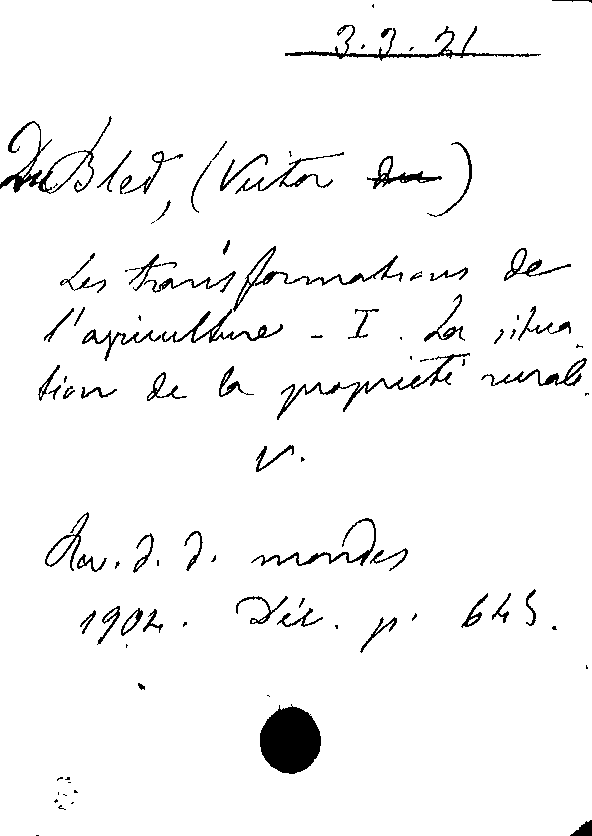 3.3.21
Du Bled, (Victor du)
Les transformations de
l'agriculture - I. La situa-
tion de la propriété rurale.
v.
Rev. d. d. mondes
1904. Déc. p. 645.